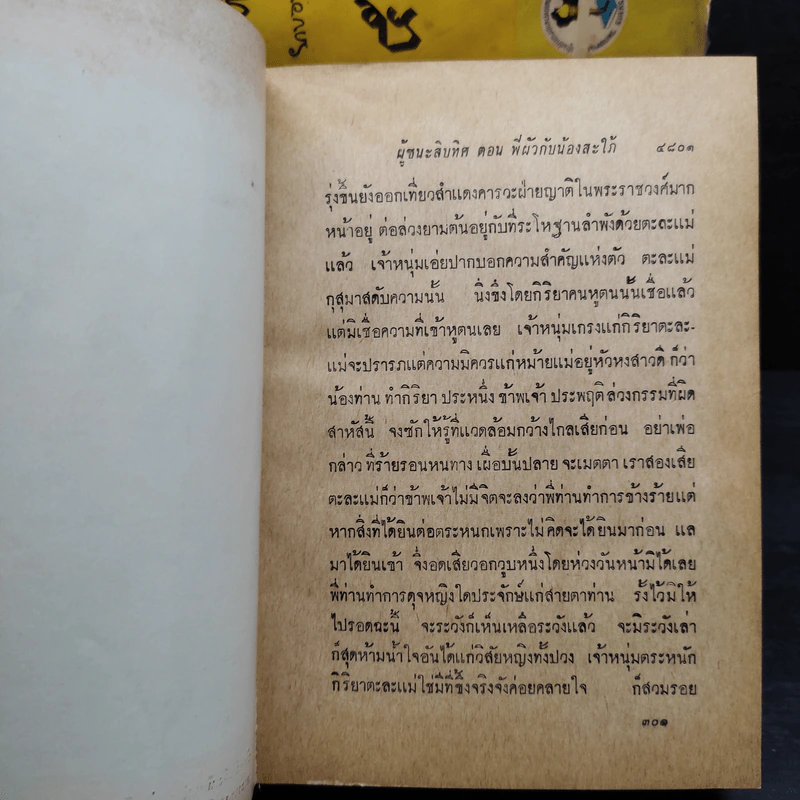 ผู้ชนะสิบทิศ ตอน พี่ผัวกับน้องสะใภ้ ๔๘๐๑
รุ่งขึ้นยังออกเที่ยวสำแดงคารวะฝ่ายญาติในพระราชวงศ์มาก
หน้าอยู่ ต่อล่วงยามต้นอยู่กับที่ระโหฐานลำพังด้วยตะละแม่
แล้ว เจ้าหนุ่มเอ่ยปากบอกความสำคัญแห่งตัว ตะละแม่
กุสุมาสดับความนั้น นิ่งขึ้งโดยกิริยาคนหูตนนั้นเชื่อแล้ว
แต่มิเชื่อความที่เข้าหูตนเลย เจ้าหนุ่มเกรงแก่กิริยาตะละ-
แม่จะปรารภแต่ความมิควรแก่หม้ายแม่อยู่หัวหงสาวดี ก็ว่า
น้องท่าน ทำกิริยา ประหนึ่ง ข้าพเจ้า ประพฤติ ล่วงกรรมที่ผิด
สาหัสนี้ จงซักให้รู้ที่แวดล้อมกว้างไกลเสียก่อน อย่าเพ่อ
กล่าว ที่ร้ายรอนหนทาง เผื่อบั้นปลาย จะเมตตา เราสองเสีย
ตะละแม่ก็ว่าข้าพเจ้าไม่มีจิตจะลงว่าพี่ท่านทำการข้างร้ายแต่
หากสิ่งที่ได้ยินต่อตระหนกเพราะไม่คิดจะได้ยินมาก่อน แล
มาได้ยินเข้า จึ่งอดเสียวอกวูบหนึ่งโดยห่วงวันหน้ามิได้เลย
พี่ท่านทำการดุจหญิงใดประจักษ์แก่สายตาท่าน รั้งไว้มิให้
ไปรอดฉะนี้ จะระวังก็เห็นเหลือระวังแล้ว จะมิระวังเล่า
ก็สุดห้ามน้ำใจอันได้แก่วิสัยหญิงทั้งปวง เจ้าหนุ่มตระหนัก
กิริยาตะละแม่ใช่มีที่ขึ้งจริงจังค่อยคลายใจ ก็สวมรอย
๓๐๑